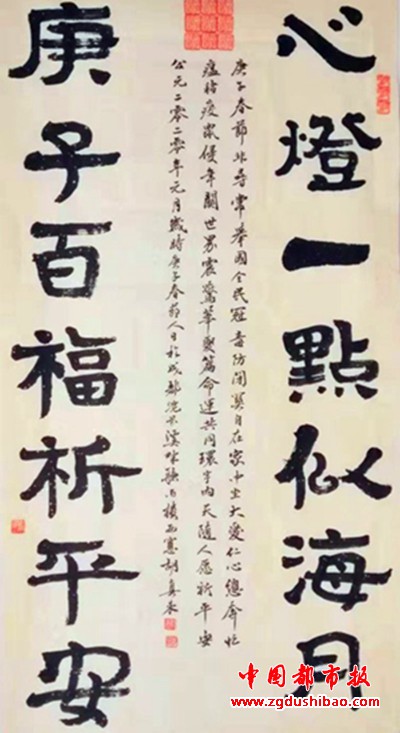 心燈一點似海月
庚子春節非尋常舉國全民冠毒防自在家中坐大愛仁心總奔忙
瘟時疫侵年關世界震驚華夏篇命運共同環宇內天隨人愿祈平安
公元二零二零年元月歲時庚子春節人日於成都浣花溪
庚子百福祈平安
中国都市报
www.zgdushibao.com